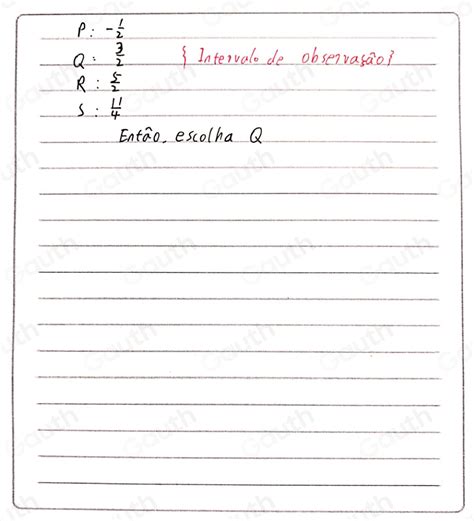 P: -1/2
Q: 3/2 { Intervalo de observação}
R: 5/2
S: 11/4
Então, escolha Q